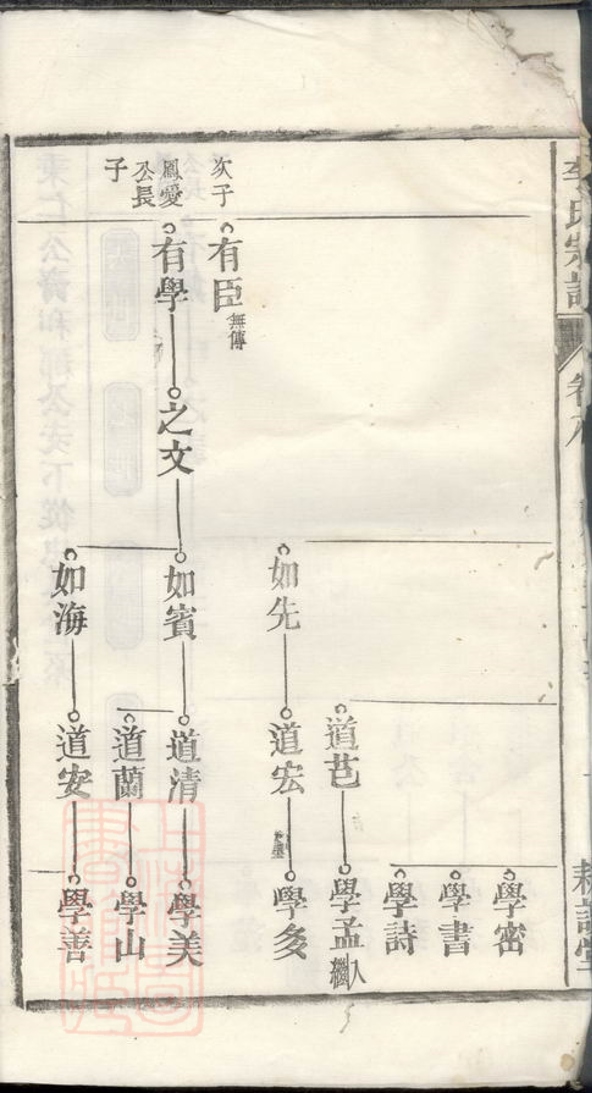 李氏宗譜
卷八
耕讀堂
次子
鳳愛
公長
子
有臣
無傳
有學
之文
如先
如賓
如海
道芑
道宏
道清
道蘭
道安
學密
學書
學詩
學孟
入
繼
學㚊
學美
學山
學善